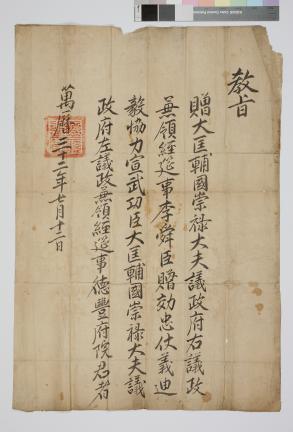 教旨
贈大匡輔國崇祿大夫議政府右議政
兼領經筵事李舜臣贈効忠仗義迪
毅協力宣武功臣大匡輔國崇祿大夫議
政府左議政兼領經筵事德豐府院君者
萬曆三十二年七月十二日